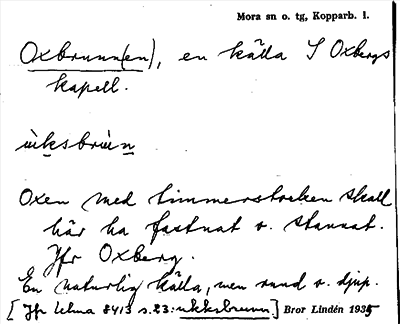 Mora sn o. tg, Kopparb. l.
Oxbrunn(en), en källa S Oxbergs
kapell.
ùksbrùn
Oxen med timmerstocken skall
här ha fastnat o. stannat.
Jfr Oxberg.
En naturlig källa, men rund o. djup.
[Jfr Ulma 8413 s. 23: ukksbrunn] Bror Lindén 1935